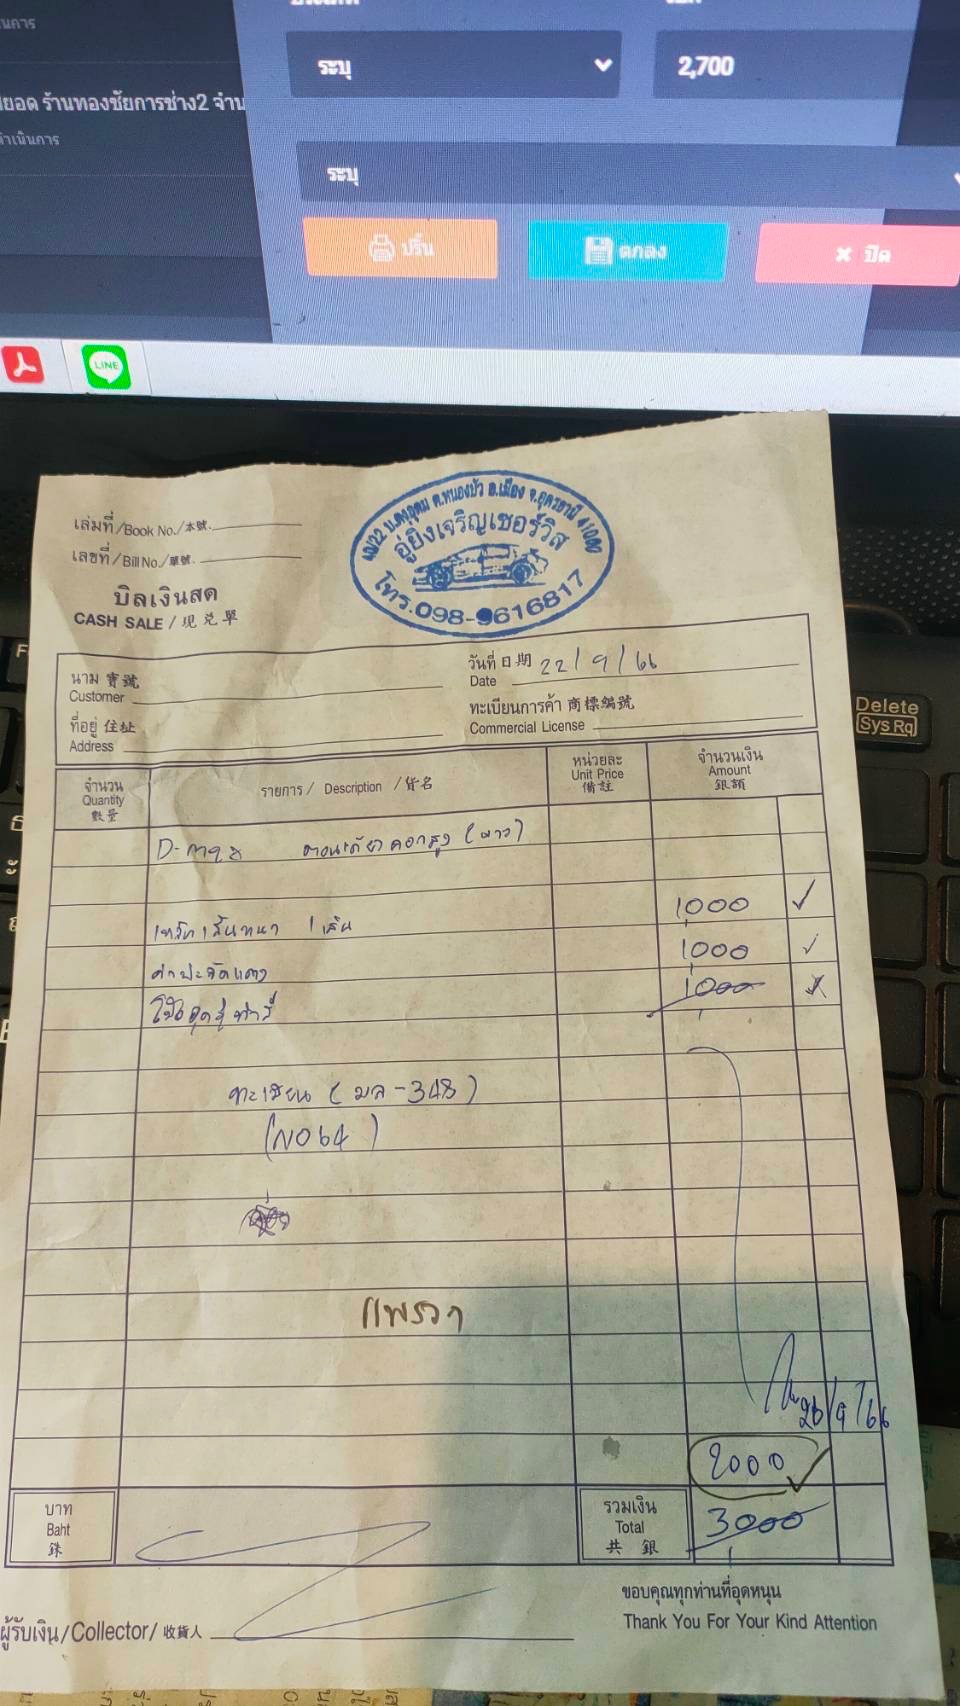 นการ
ระบุ
2,700
ยอด ร้านทองชัยการช่าง2 จำน
ดำเนินการ
ระบุ
ปริ้น
ตกลง
ปิด
LINE
เล่มที่/Book No./本號.
เลขที่/Bill No./單號.
บิลเงินสด
CASH SALE / 现兑單
ต.หนองบัว อ.เมือง จ.อุดรธานี 41000
อู่ยิ่งเจริญเซอร์วิส
โทร.098-9616817
นาม 寶號
Customer
วันที่ 日期 22/9/66
Date
ที่อยู่ 住址
Address
ทะเบียนการค้า 商標編號
Commercial License
จำนวน
Quantity
數量
รายการ / Description / 貨名
หน่วยละ
Unit Price
備註
จำนวนเงิน
Amount
銀額
D-max ตอนเดียวคอกสูง (ขาว)
1 เส้น 1,000
1,000
1,000
ทะเบียน (มล-348)
(NO64)
แพรวา
26/9/66
2000
บาท
Baht
銖
รวมเงิน
Total
共 銀
3000
ขอบคุณทุกท่านที่อุดหนุน
ผู้รับเงิน/Collector/收貨人
Thank You For Your Kind Attention
Delete
Sys Rq